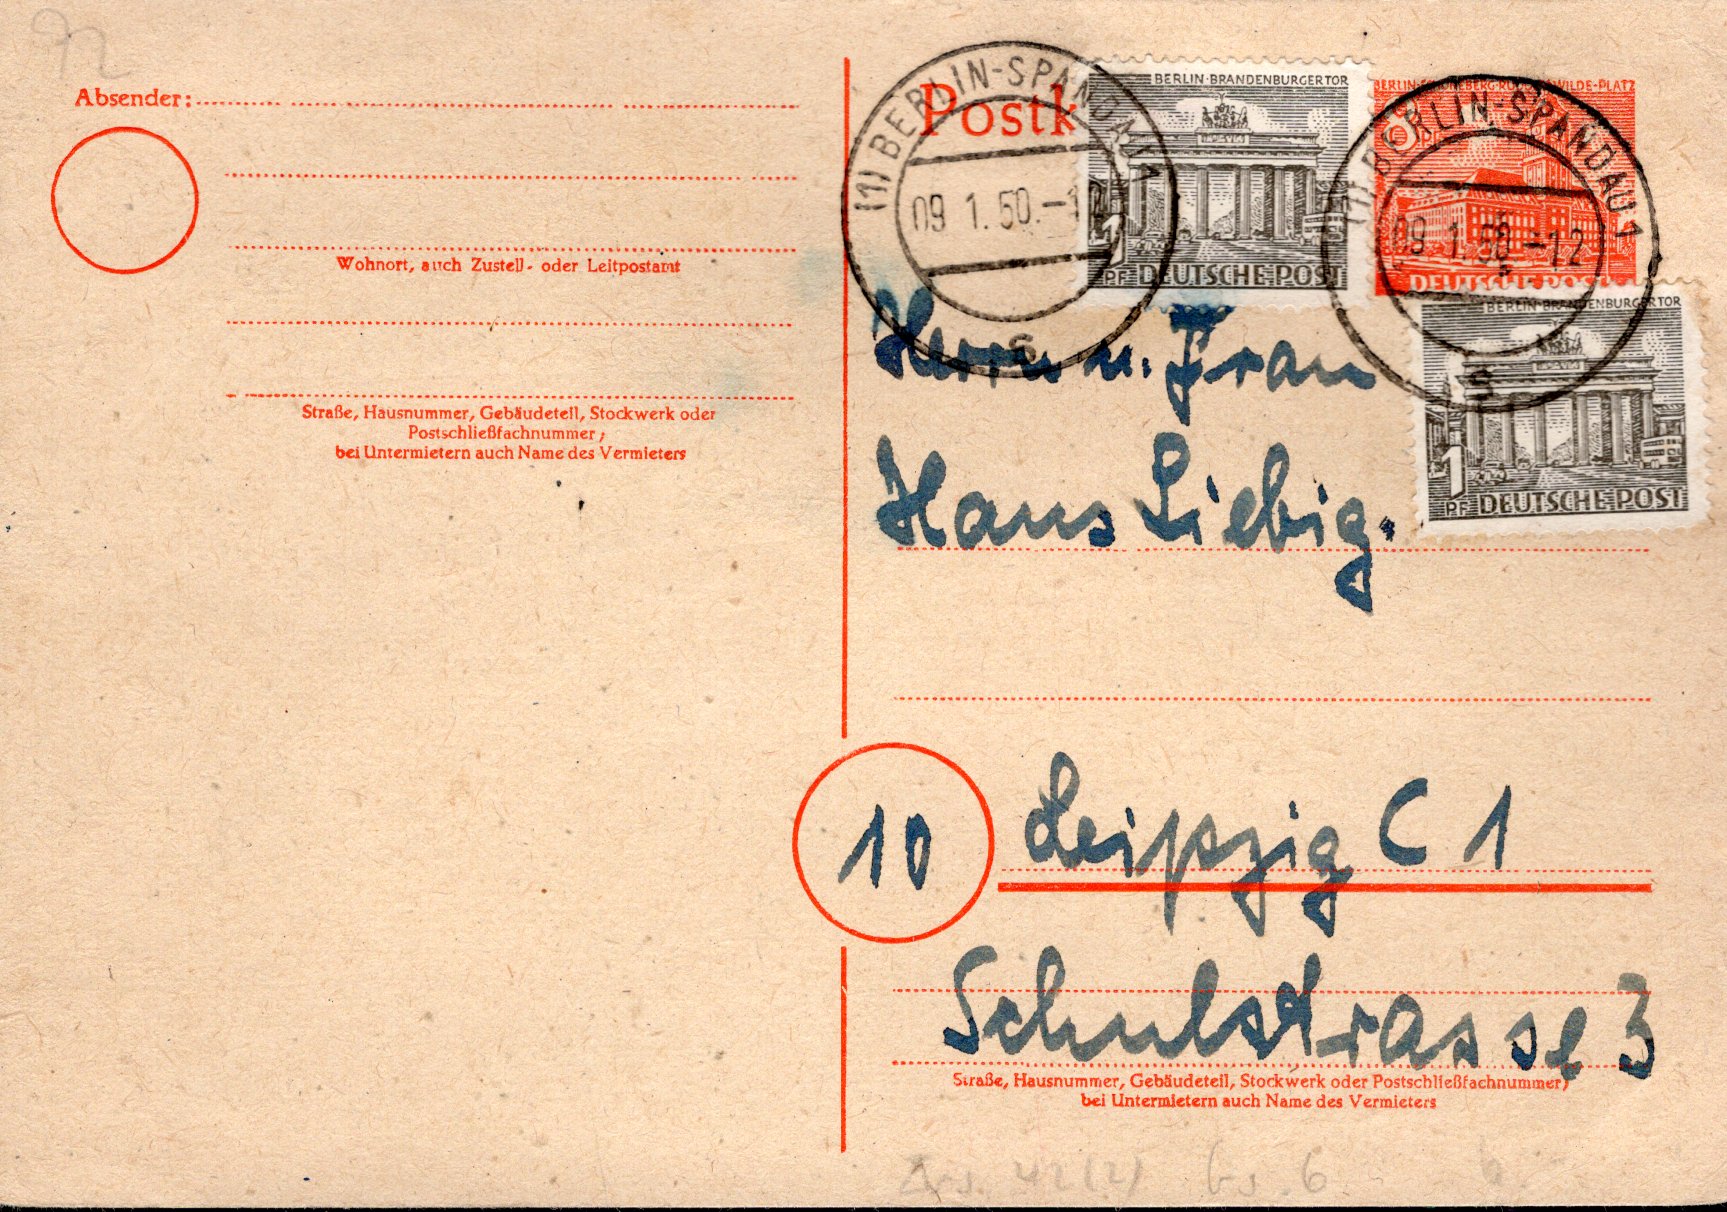 92
Absender:
Wohnort, auch Zustell- oder Leitpostamt
Straße, Hausnummer, Gebäudeteil, Stockwerk oder
Postschließfachnummer;
bei Untermietern auch Name des Vermieters
Postk
(1) BERLIN-SPANDAU 1
09 1.50.-1
s
BERLIN·BRANDENBURGER TOR
1
PF DEUTSCHE POST
WILDE-PLATZ
DEUTSCHE POST
(1) BERLIN-SPANDAU 1
09 1.50-12
s
BERLIN·BRANDENBURGER TOR
1
PF DEUTSCHE POST
Herrn u. Frau
Hans Liebig.
10 Leipzig C 1
Schulstrasse 3
Straße, Hausnummer, Gebäudeteil, Stockwerk oder Postschließfachnummer;
bei Untermietern auch Name des Vermieters
42 (2) 6